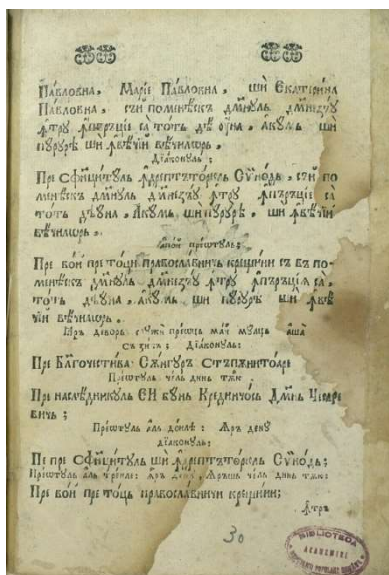 Па́вловна, Марїе Па́вловна, ши Екатерина
Па́вловна, съи поменѣскъ Дм҃нꙋль Дм҃незѣꙋ
ꙟтрꙋ ꙟпърѫціе са тотъ дѣ ꙋна, акꙋмь ши
пꙋрꙋрѣ ши ꙟвѣчїй вѣчилѡрь.
Дїаконꙋль:
Пре Сфинцитꙋль ꙟдрептъторюль Сѷнодь, съи по
менѣскъ Дм҃нꙋль Дм҃незѣꙋ ꙟтрꙋ ꙟпърѫціе са
тотъ дѣꙋна, акꙋмь, ши пꙋрꙋрѣ, ши ꙟвѣчїй
вѣчилѡрь.
прештꙋль:
Пре вой пре тоци православничй крещинїй съ въ по
менѣскъ Дм҃нꙋль Дм҃незѣꙋ ꙟтрꙋ ꙟпърѫціѧ са,
тотъ дѣꙋна, акꙋмь ши пꙋрꙋрѣ ши ꙟвѣ
чїй вѣчилѡрь.
Іаръ деворь слꙋжи преѡци май мꙋлци аша
съ зикъ: Дїаконꙋль:
Пре Благочестива Сингꙋръ Стъпѫнитоаре
Преѡтꙋль чель динь тѫю
Пре наслѣдникꙋль Єй бꙋнь Крединчось Дм҃нь Цесаре
вичь;
Преѡтꙋль аль доиле: Іаръ
дїаконꙋль:
Пе пре Сфинцитꙋль ши ꙟдрептъторюль Сѷнодь;
Преѡтꙋль аль треиле: Іаръ Іаръшь чель динь тѫю:
Пре вой пре тоць православничй крещинїй;
ꙟтрꙋ
30
БІБЛІОТЕСА
АCADEMIEI